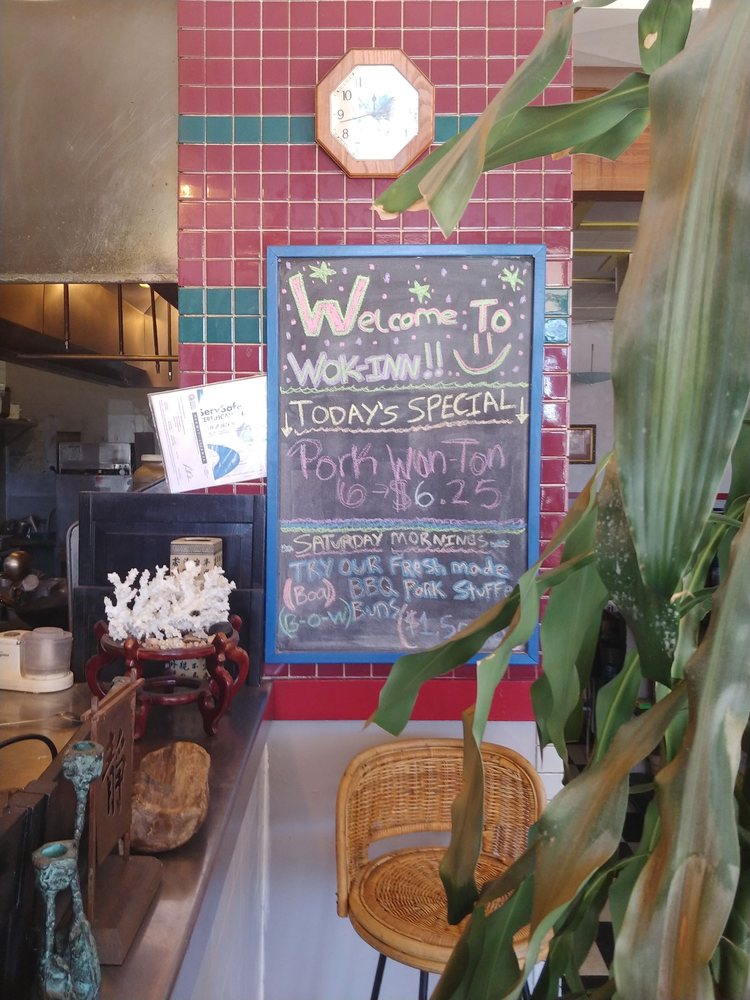 10
9
8
Welcome To
Wok-Inn!!
Today's Special
Pork Won-Ton
6→$6.25
Saturday Mornings
Try our Fresh made
(Boa) BBQ Pork Stuffe
(B-O-W) Buns
ServSafe
静